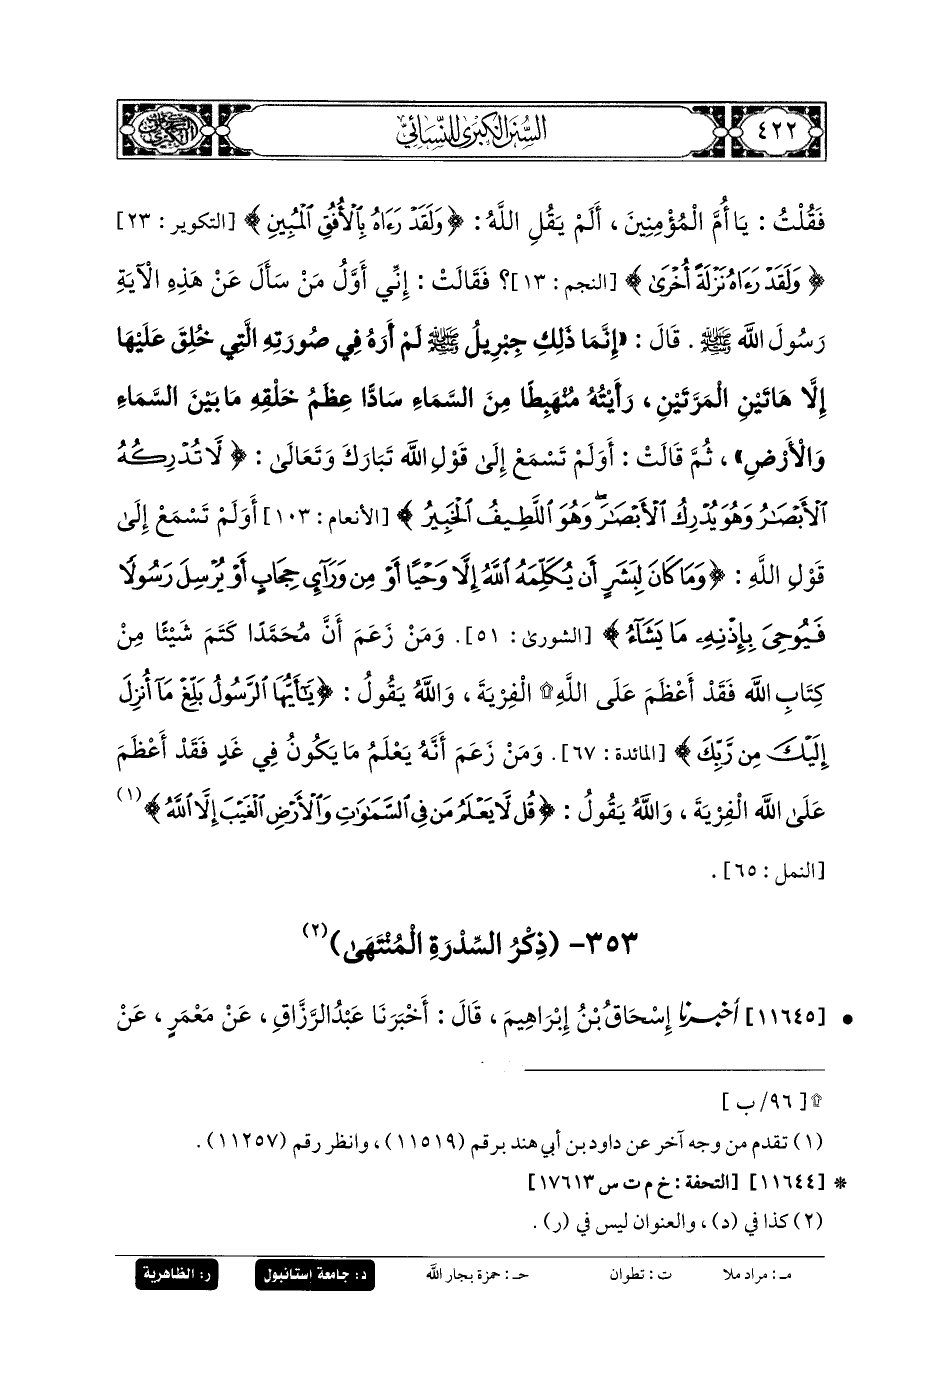 ٤٢٢
السُّنَنُ الكِبْرَى لِلنَّسَائِيِّ
فَقُلْتُ : يَا أُمَّ الْمُؤْمِنِينَ ، أَلَمْ يَقُلِ اللَّهُ : ﴿ وَلَقَدۡ رَءَاهُ بِٱلۡأُفُقِ ٱلۡمُبِينِ ﴾ [التكوير : ٢٣]
﴿ وَلَقَدۡ رَءَاهُ نَزۡلَةً أُخۡرَىٰ ﴾ [النجم : ١٣]؟ فَقَالَتْ : إِنِّي أَوَّلُ مَنْ سَأَلَ عَنْ هَذِهِ الْآيَةِ
رَسُولَ اللَّهِ ﷺ . قَالَ : «إِنَّمَا ذَلِكِ جِبْرِيلُ ﷺ لَمْ أَرَهُ فِي صُورَتِهِ الَّتِي خُلِقَ عَلَيْهَا
إِلَّا هَاتَيْنِ الْمَرَّتَيْنِ ، رَأَيْتُهُ مُنْهَبِطًا مِنَ السَّمَاءِ سَادًّا عِظَمُ خَلْقِهِ مَا بَيْنَ السَّمَاءِ
وَالْأَرْضِ» ، ثُمَّ قَالَتْ : أَوَلَمْ تَسْمَعْ إِلَىٰ قَوْلِ اللَّهِ تَبَارَكَ وَتَعَالَىٰ : ﴿ لَّا تُدۡرِكُهُ
ٱلۡأَبۡصَٰرُ وَهُوَ يُدۡرِكُ ٱلۡأَبۡصَٰرَۖ وَهُوَ ٱللَّطِيفُ ٱلۡخَبِيرُ ﴾ [الأنعام : ١٠٣] أَوَلَمْ تَسْمَعْ إِلَىٰ
قَوْلِ اللَّهِ : ﴿ وَمَا كَانَ لِبَشَرٍ أَن يُكَلِّمَهُ ٱللَّهُ إِلَّا وَحۡيًا أَوۡ مِن وَرَآيِٕ حِجَابٍ أَوۡ يُرۡسِلَ رَسُولًا
فَيُوحِىَ بِإِذۡنِهِۦ مَا يَشَآءُ ﴾ [الشورىٰ : ٥١]. وَمَنْ زَعَمَ أَنَّ مُحَمَّدًا كَتَمَ شَيْئًا مِنْ
كِتَابِ اللَّهِ فَقَدْ أَعْظَمَ عَلَى اللَّهِ۩ الْفِرْيَةَ ، وَاللَّهُ يَقُولُ : ﴿ يَٰٓأَيُّهَا ٱلرَّسُولُ بَلِّغۡ مَآ أُنزِلَ
إِلَيۡكَ مِن رَّبِّكَ ﴾ [المائدة : ٦٧]. وَمَنْ زَعَمَ أَنَّهُ يَعْلَمُ مَا يَكُونُ فِي غَدٍ فَقَدْ أَعْظَمَ
عَلَىٰ اللَّهِ الْفِرْيَةَ ، وَاللَّهُ يَقُولُ : ﴿ قُل لَّا يَعۡلَمُ مَن فِى ٱلسَّمَٰوَٰتِ وَٱلۡأَرۡضِ ٱلۡغَيۡبَ إِلَّا ٱللَّهُ ﴾(١)
[النمل : ٦٥] .
٣٥٣- (ذِكْرُ السِّدْرَةِ الْمُنْتَهَىٰ)(٢)
• [١١٦٤٥] أَخْبَرَنَا إِسْحَاقُ بْنُ إِبْرَاهِيمَ ، قَالَ : أَخْبَرَنَا عَبْدُ الرَّزَّاقِ ، عَنْ مَعْمَرٍ ، عَنْ
۩ [ ٩٦/ ب ]
(١) تقدم من وجه آخر عن داود بن أبي هند برقم (١١٥١٩) ، وانظر رقم (١١٢٥٧) .
* [١١٦٤٤] [التحفة : خ م ت س ١٧٦١٣]
(٢) كذا في (د) ، والعنوان ليس في (ر) .
مـ : مراد ملا ت : تطوان حـ : حمزة بجار الله د : جامعة إستانبول ر : الظاهرية